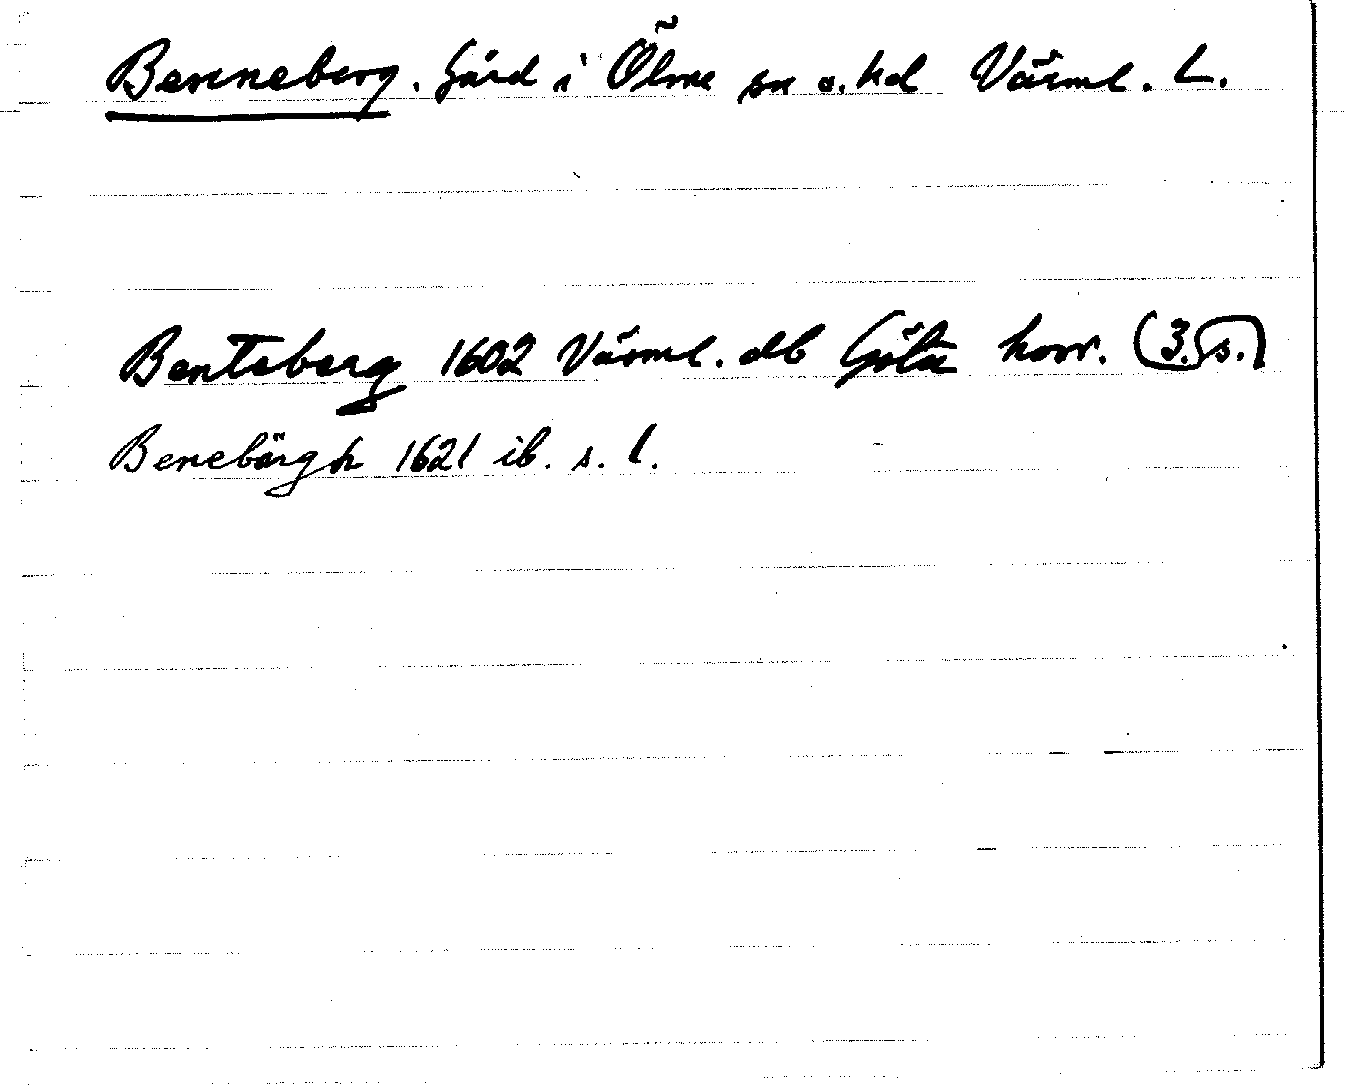 Benneberg. Gård i Ölme sn o. hd Värml. L.
Benteberg 1602 Värml. db Göta hovr. (3. s.)
Benebärgh 1621 ib. s. l.